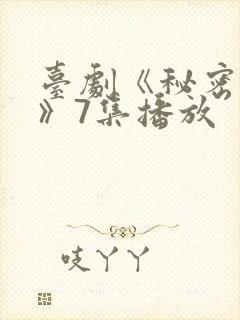 臺劇《秘密
》7集播放
吱丫丫